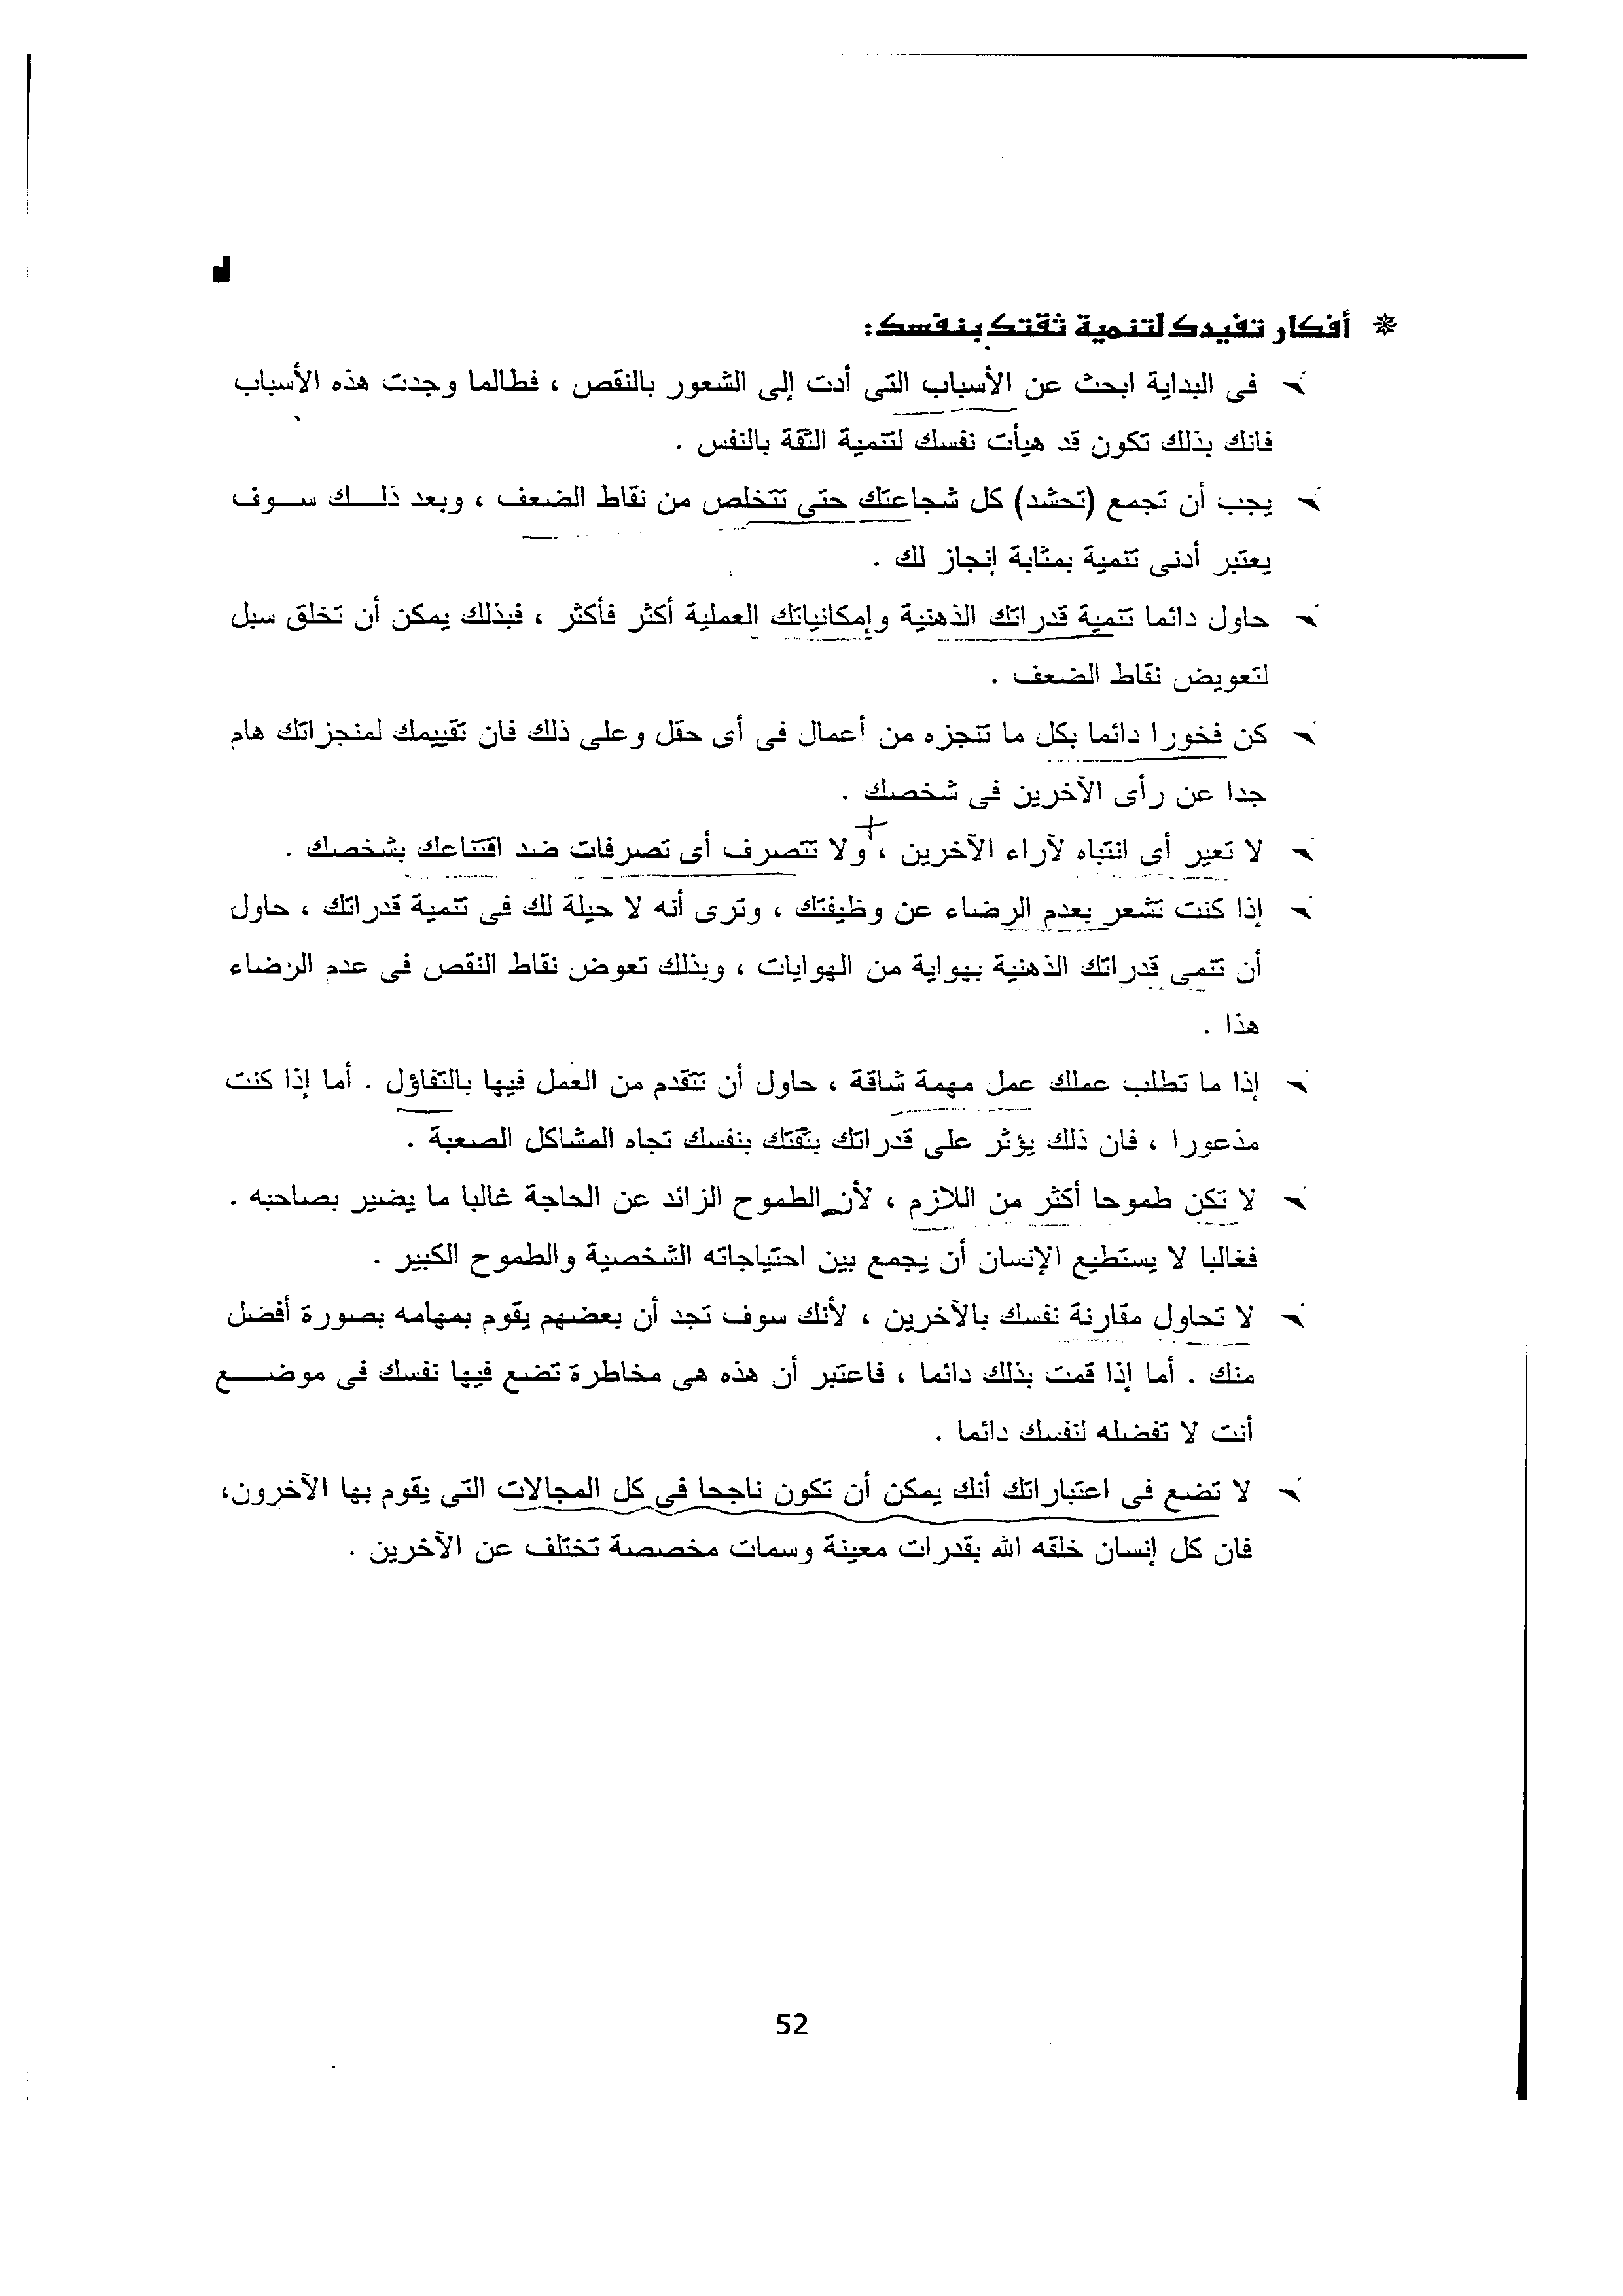 * أفكار تفيدك لتنمية ثقتك بنفسك:
فى البداية ابحث عن الأسباب التى أدت إلى الشعور بالنقص ، فطالما وجدت هذه الأسباب
فانك بذلك تكون قد هيأت نفسك لتنمية الثقة بالنفس .
يجب أن تجمع (تحشد) كل شجاعتك حتى تتخلص من نقاط الضعف ، وبعد ذلك سوف
يعتبر أدنى تنمية بمثابة إنجاز لك .
حاول دائما تنمية قدراتك الذهنية وإمكانياتك العملية أكثر فأكثر ، فبذلك يمكن أن تخلق سبل
لتعويض نقاط الضعف .
كن فخورا دائما بكل ما تنجزه من أعمال فى أى حقل وعلى ذلك فان تقييمك لمنجزاتك هام
جدا عن رأى الآخرين فى شخصك .
لا تعير أى انتباه لآراء الآخرين ، ولا تتصرف أى تصرفات ضد اقتناعك بشخصك .
إذا كنت تشعر بعدم الرضاء عن وظيفتك ، وترى أنه لا حيلة لك فى تنمية قدراتك ، حاول
أن تنمى قدراتك الذهنية بهواية من الهوايات ، وبذلك تعوض نقاط النقص فى عدم الرضاء
هذا .
إذا ما تطلب عملك عمل مهمة شاقة ، حاول أن تتقدم من العمل فيها بالتفاؤل . أما إذا كنت
مذعورا ، فان ذلك يؤثر على قدراتك بثقتك بنفسك تجاه المشاكل الصعبة .
لا تكن طموحا أكثر من اللازم ، لأن الطموح الزائد عن الحاجة غالبا ما يضير بصاحبه .
فغالبا لا يستطيع الإنسان أن يجمع بين احتياجاته الشخصية والطموح الكبير .
لا تحاول مقارنة نفسك بالآخرين ، لأنك سوف تجد أن بعضهم يقوم بمهامه بصورة أفضل
منك . أما إذا قمت بذلك دائما ، فاعتبر أن هذه هى مخاطرة تضع فيها نفسك فى موضع
أنت لا تفضله لنفسك دائما .
لا تضع فى اعتباراتك أنك يمكن أن تكون ناجحا فى كل المجالات التى يقوم بها الآخرون،
فان كل إنسان خلقه الله بقدرات معينة وسمات مخصصة تختلف عن الآخرين .
52